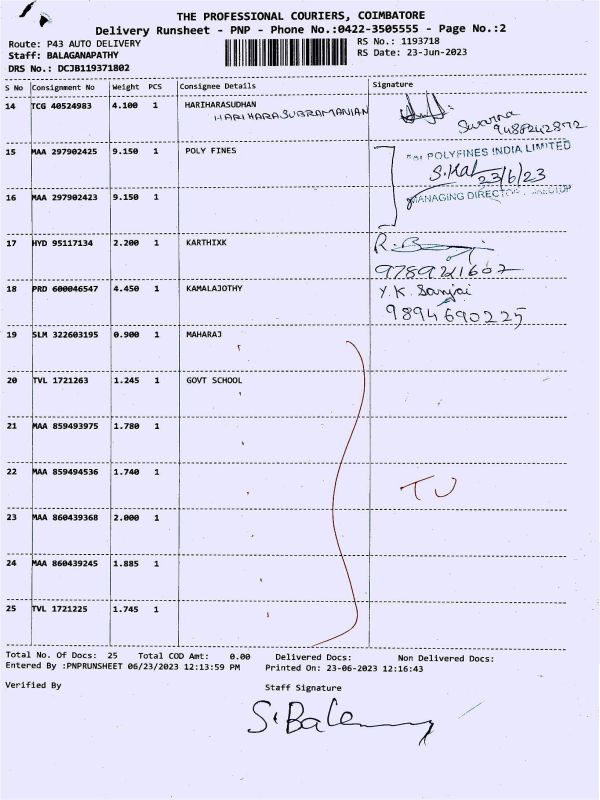 THE PROFESSIONAL COURIERS, COIMBATORE
Delivery Runsheet - PNP - Phone No.:0422-3505555 - Page No.:2
Route: P43 AUTO DELIVERY RS No.: 1193718
Staff: BALAGANAPATHY RS Date: 23-Jun-2023
DRS No.: DCJB119371802
S No Consignment No Weight PCS Consignee Details Signature
14 TCG 40524983 4.100 1 HARIHARASUDHAN
HARIHARASUBRAMANIAN
Swarna
9488242872
15 MAA 297902425 9.150 1 POLY FINES
POLYFINES INDIA LIMITED
23/6/23
16 MAA 297902423 9.150 1
MANAGING DIRECTOR
17 HYD 95117134 2.200 1 KARTHIXK
9789421607
18 PRD 600046547 4.450 1 KAMALAJOTHY
Y.K. Sanjai
9894690225
19 SLM 322603195 0.900 1 MAHARAJ
20 TVL 1721263 1.245 1 GOVT SCHOOL
21 MAA 859493975 1.780 1
22 MAA 859494536 1.740 1
TU
23 MAA 860439368 2.000 1
24 MAA 860439245 1.885 1
25 TVL 1721225 1.745 1
Total No. Of Docs: 25 Total COD Amt: 0.00 Delivered Docs: Non Delivered Docs:
Entered By :PNPRUNSHEET 06/23/2023 12:13:59 PM Printed On: 23-06-2023 12:16:43
Verified By Staff Signature